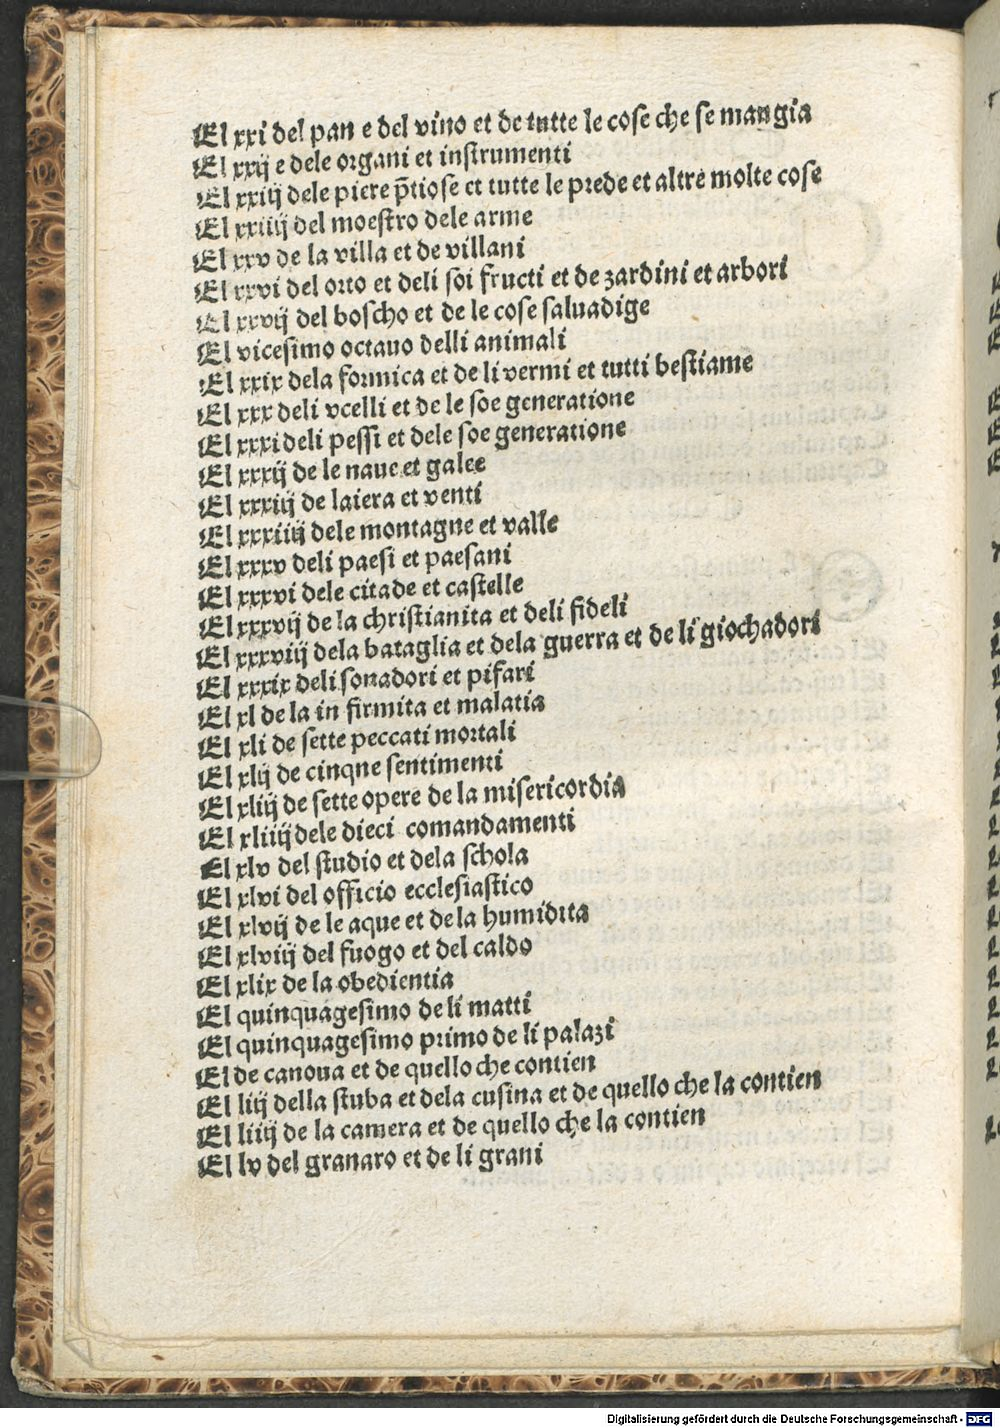 El xxi del pan e del vino et de tutte le cose che se mangia
El xxij e dele organi et instrumenti
El xxiij dele piere p̃tiose et tutte le prede et altre molte cose
El xxiiij del moestro dele arme
El xxv de la villa et de villani
El xxvi del orto et deli soi fructi et de zardini et arbori
El xxvij del boscho et de le cose saluadige
El vicesimo octauo delli animali
El xxix dela formica et de li vermi et tutti bestiame
El xxx deli vcelli et de le soe generatione
El xxxi deli pessi et dele soe generatione
El xxxij de le naue et galee
El xxxiij de laiera et venti
El xxxiiij dele montagne et valle
El xxxv deli paesi et paesani
El xxxvi dele citade et castelle
El xxxvij de la christianita et deli fideli
El xxxviij dela bataglia et dela guerra et de li giochadori
El xxxix deli sonadori et pifari
El xl de la in firmita et malatia
El xli de sette peccati mortali
El xlij de cinqne sentimenti
El xliij de sette opere de la misericordia
El xliiij dele dieci comandamenti
El xlv del studio et dela schola
El xlvi del officio ecclesiastico
El xlvij de le aque et de la humidita
El xlviij del fuogo et del caldo
El xlix de la obedientia
El quinquagesimo de li matti
El quinquagesimo primo de li palazi
El de canoua et de quello che contien
El liij della stuba et dela cusina et de quello che la contien
El liiij de la camera et de quello che la contien
El lv del granaro et de li grani
Digitalisierung gefördert durch die Deutsche Forschungsgemeinschaft - DFG